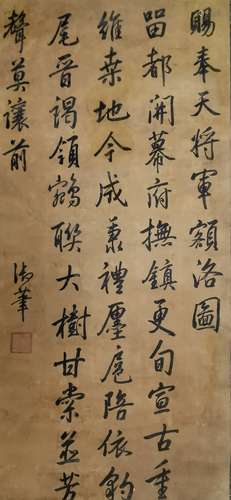 賜奉天將軍額洛圖
畱都開幕府撫鎮更旬宣古重
維桑地今成禮廛扈陪依豹
尾晉謁領鵷聯大樹甘棠並芳
聲莫讓前
御筆